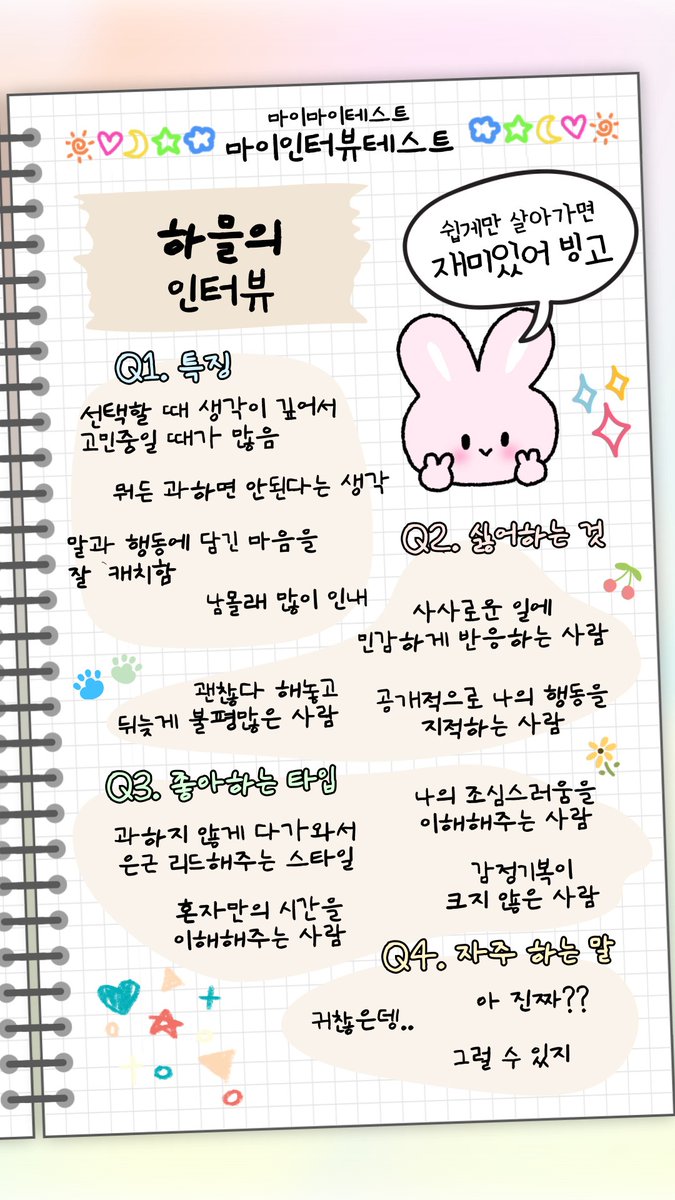 마이마이테스트
마이인터뷰테스트
하믈의
인터뷰
쉽게만 살아가면
재미있어 빙고
Q1. 특징
선택할 때 생각이 깊어서
고민중일 때가 많음
뭐든 과하면 안된다는 생각
말과 행동에 담긴 마음을
잘 캐치함
남몰래 많이 인내
Q2. 싫어하는 것
사사로운 일에
민감하게 반응하는 사람
괜찮다 해놓고
뒤늦게 불평많은 사람
공개적으로 나의 행동을
지적하는 사람
Q3. 좋아하는 타입
나의 조심스러움을
이해해주는 사람
과하지 않게 다가와서
은근 리드해주는 스타일
감정기복이
크지 않은 사람
혼자만의 시간을
이해해주는 사람
Q4. 자주 하는 말
아 진짜??
귀찮은뎅..
그럴 수 있지